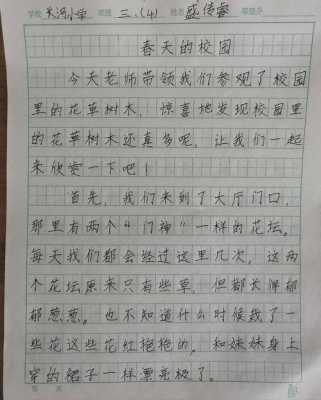 学校 天河小学 班级 三.(4) 姓名 盛传睿
春天的校园
今天老师带领我们参观了校园
里的花草树木，惊喜地发现校园里
的花草树木还真多呢，让我们一起
来欣赏一下吧！
首先，我们来到了大厅门口，
那里有两个“门神”一样的花坛。
每天我们都会经过这里几次，这两
个花坛原来只有些草，但都长得郁
郁葱葱。也不知道什么时候栽了一
些花这些花红艳艳的，和妹妹身上
穿的裙子一样漂亮极了。